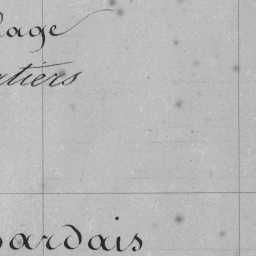 lage
tiers
bardais